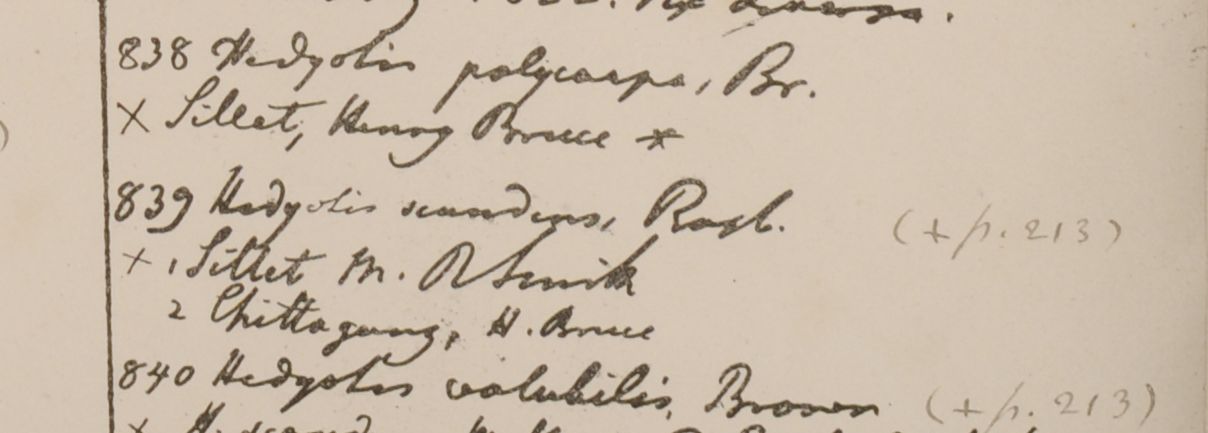 838 Hedyotis polycarpa, Br.
× Sillet, Henry Bruce ×
839 Hedyotis scandens, Roxb. (+ p. 213)
+ 1 Sillet M. R Smith
2 Chittagong, H. Bruce
840 Hedyotis volubilis, Brown (+ p. 213)